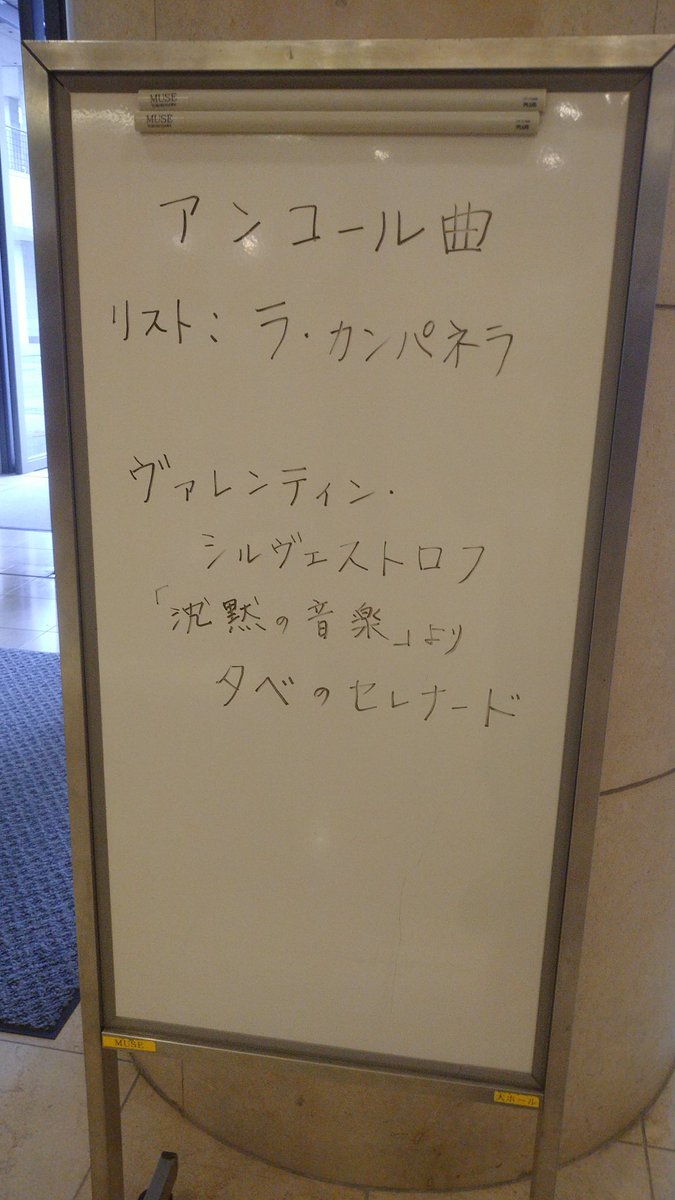 MUSE
MUSE
アンコール曲
リスト: ラ・カンパネラ
ヴァレンティン・
シルヴェストロフ
「沈黙の音楽」より
夕べのセレナード
MUSE
大ホール